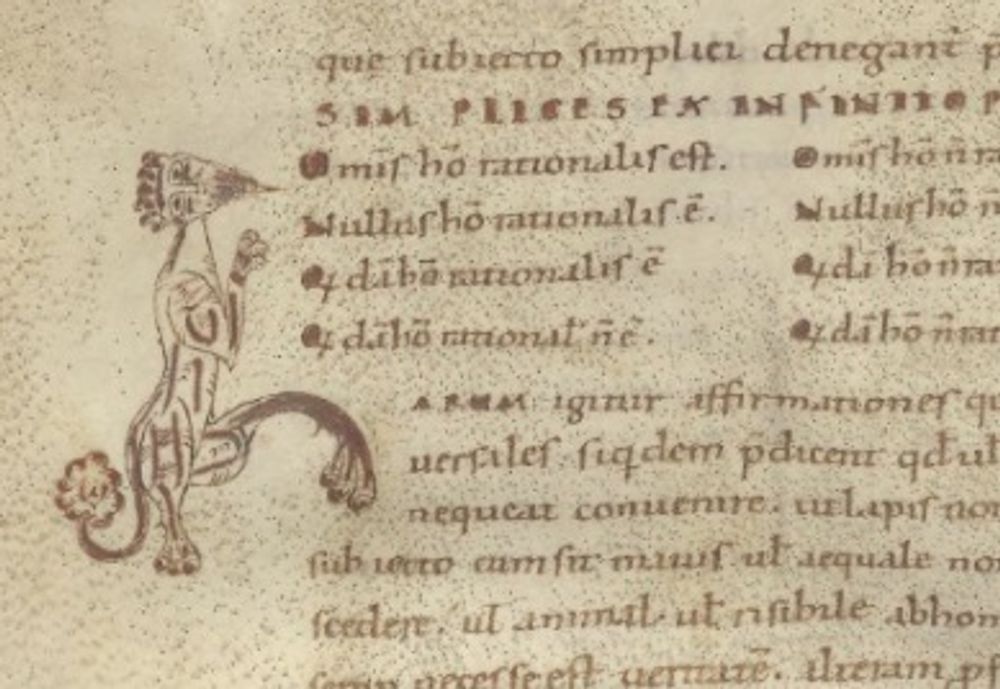 que subiecto simplici denegant̄ p
SIMPLICES EX INFINITO
Omīs hō rationalis est. Omīs hō n̄ ra
Nullus hō rationalis ē. Nullus hō n̄
Q̨dā hō rationalis ē Q̨dā hō n̄ ra
Q̨dā hō rational̄ n̄ ē. Q̨dā hō n̄ ra
ARUM igitur affirmationes qu
uersales siqdem p̄dicent qd ul
nequeat conuenire. ut lapis non
subiecto cum sit maius ul̄ aequale non
scedere. ul̄ animal ul̄ risibile ab hom
necesse est ueritatē. Iteram ps